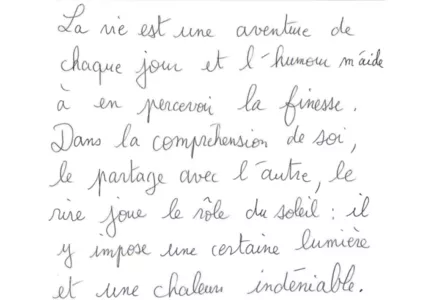 La vie est une aventure de
chaque jour et l'humour m'aide
à en percevoir la finesse.
Dans la compréhension de soi,
le partage avec l'autre, le
rire joue le rôle du soleil : il
y impose une certaine lumière
et une chaleur indéniable.